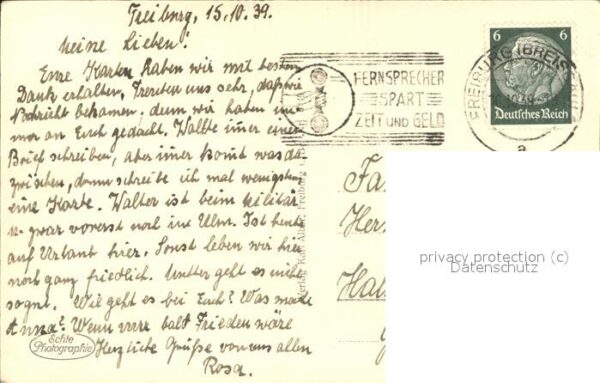 Freiburg, 15.10.39.
Meine Lieben!
Eure Karten haben wir mit bestem
Dank erhalten, freuten uns sehr, daß wir
Nachricht bekamen, denn wir haben im-
mer an Euch gedacht. Wollte imer einen
Brief schreiben, aber imer komt was da-
zwischen, dann schreibe ich mal wenigstens
eine Karte. Walter ist beim Militär
u. zwar vorerst noch in Ulm. Ist heute
auf Urlaub hier. Sonst leben wir hier
noch ganz friedlich. Mutter geht es nicht
so gut. Wie geht es bei Euch? Was macht
Anna? Wenn nur balt Frieden wäre
Herzliche Grüße von uns allen
Rosa.
Echte
Photographie
FERNSPRECHER
SPART
ZEIT UND GELD
FREIBURG (BREISGAU)
a
6 6
Deutsches Reich
Fa
Her
privacy protection (c)
Datenschutz